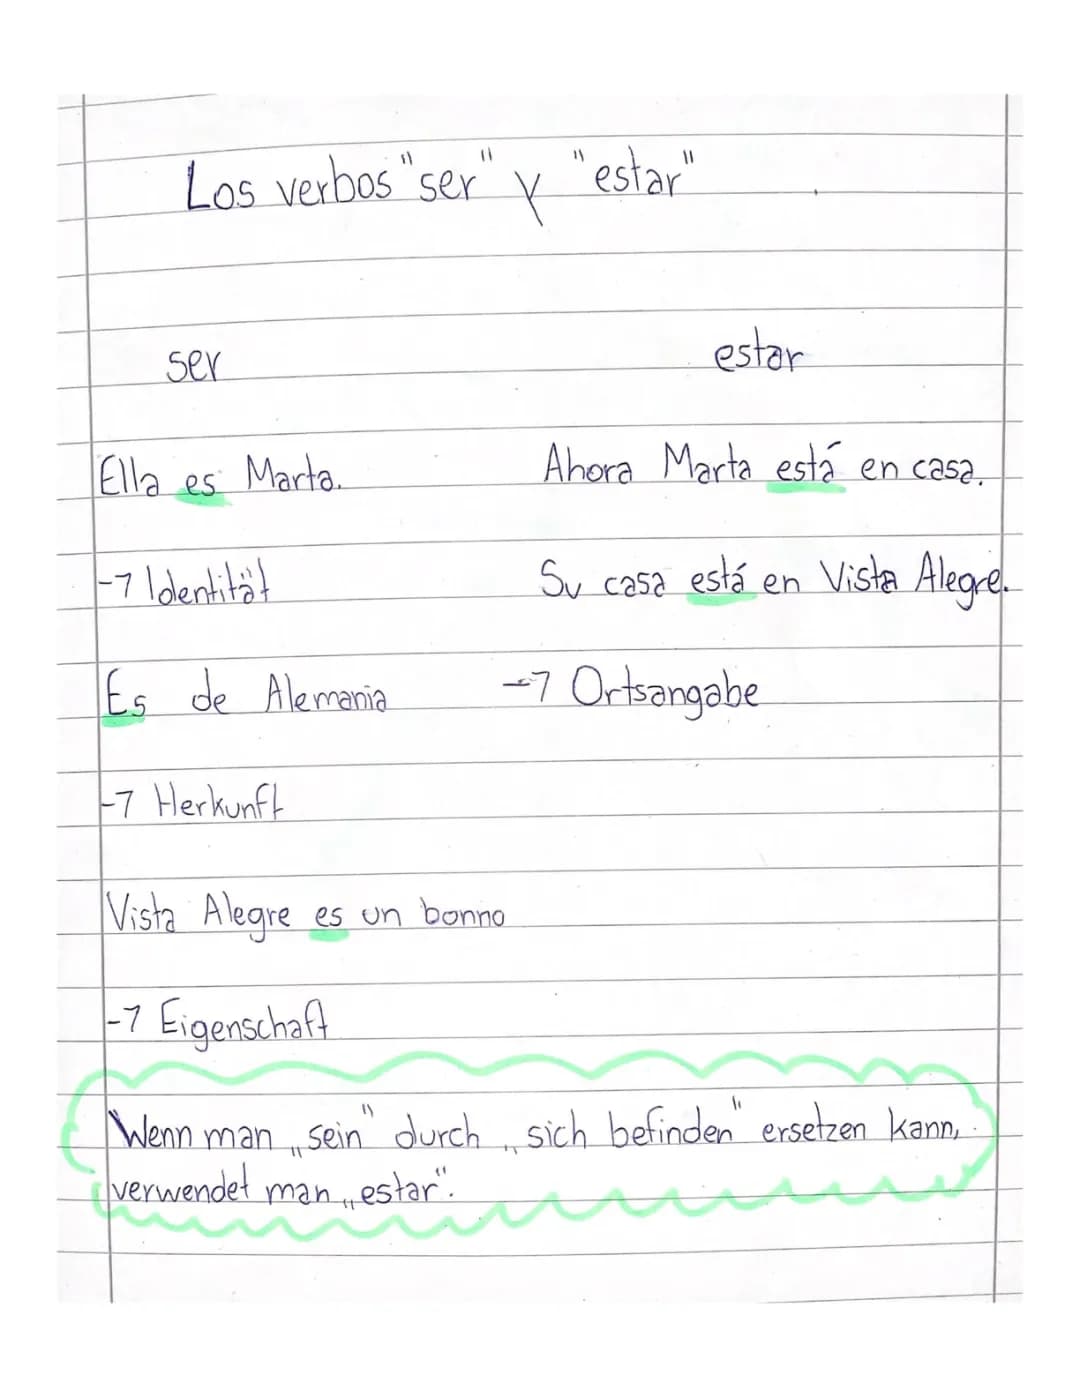 Los verbos "ser" y "estar"
ser estar
Ella es Marta. Ahora Marta está en casa.
-> Identität Su casa está en Vista Alegre.
Es de Alemania -> Ortsangabe
-> Herkunft
Vista Alegre es un bonno
-> Eigenschaft
Wenn man „sein" durch „sich befinden" ersetzen kann,
verwendet man „estar".